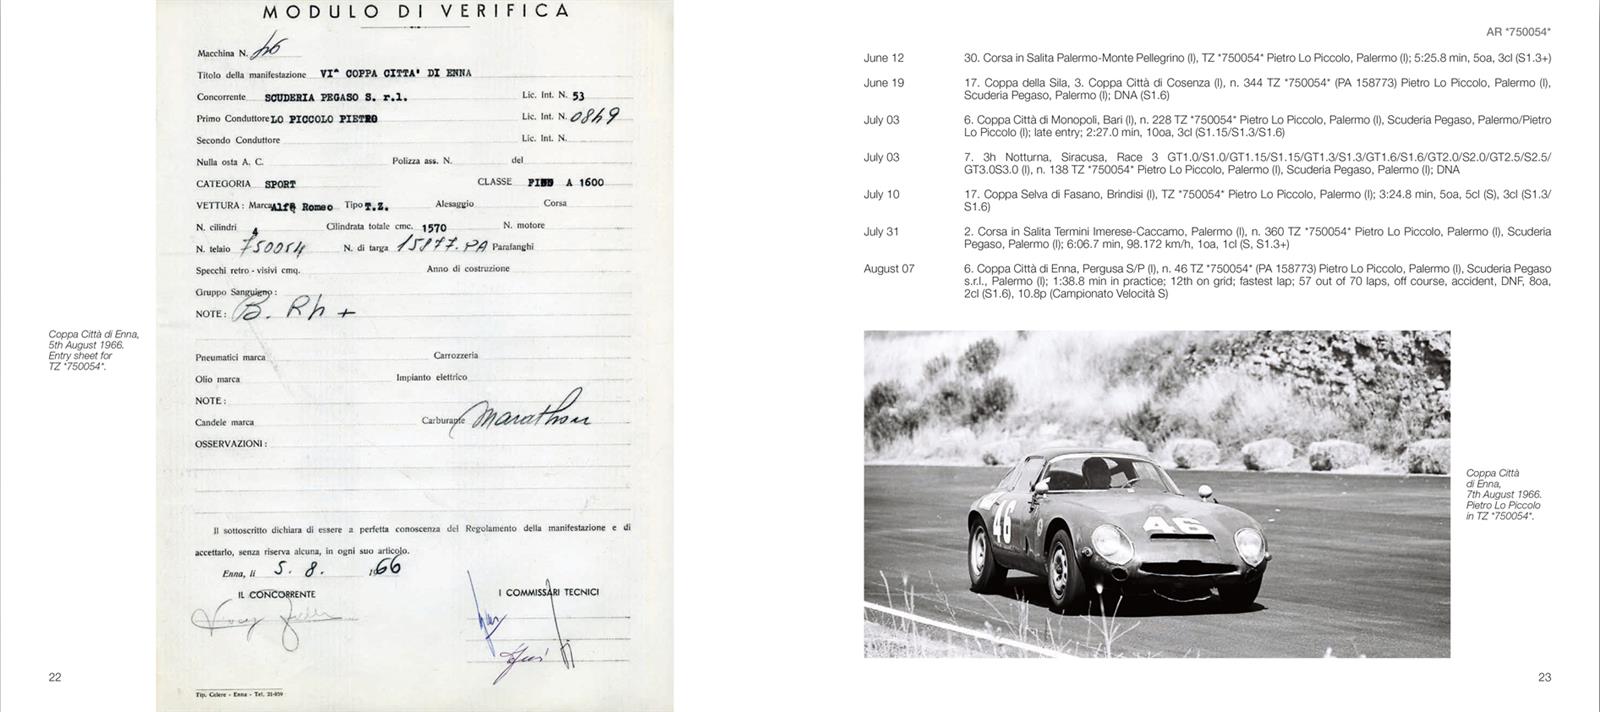 MODULO DI VERIFICA
Macchina N. 46
Titolo della manifestazione VI^ COPPA CITTA' DI ENNA
Concorrente SCUDERIA PEGASO S. r.l. Lic. Int. N. 53
Primo Conduttore LO PICCOLO PIETRO Lic. Int. N. 0849
Secondo Conduttore Lic. Int. N.
Nulla osta A. C. Polizza ass. N. del
CATEGORIA SPORT CLASSE FINO A 1600
VETTURA: Marca Alfa Romeo Tipo T.Z. Alesaggio Corsa
N. cilindri 4 Cilindrata totale cmc. 1570 N. motore
N. telaio 750054 N. di targa 15877.PA Parafanghi
Specchi retro - visivi cmq. Anno di costruzione
Gruppo Sanguigno:
NOTE: B. Rh +
Pneumatici marca Carrozzeria
Olio marca Impianto elettrico
NOTE:
Candele marca Carburante Marathon
OSSERVAZIONI:
Il sottoscritto dichiara di essere a perfetta conoscenza del Regolamento della manifestazione e di
accettarlo, senza riserva alcuna, in ogni suo articolo.
Enna, li 5. 8. 1966
IL CONCORRENTE I COMMISSARI TECNICI
Tip. Celere - Enna - Tel. 21-939
Coppa Città di Enna,
5th August 1966.
Entry sheet for
TZ *750054*.
22
AR *750054*
June 12 30. Corsa in Salita Palermo-Monte Pellegrino (I), TZ *750054* Pietro Lo Piccolo, Palermo (I); 5:25.8 min, 5oa, 3cl (S1.3+)
June 19 17. Coppa della Sila, 3. Coppa Città di Cosenza (I), n. 344 TZ *750054* (PA 158773) Pietro Lo Piccolo, Palermo (I),
Scuderia Pegaso, Palermo (I); DNA (S1.6)
July 03 6. Coppa Città di Monopoli, Bari (I), n. 228 TZ *750054* Pietro Lo Piccolo, Palermo (I), Scuderia Pegaso, Palermo/Pietro
Lo Piccolo (I); late entry; 2:27.0 min, 10oa, 3cl (S1.15/S1.3/S1.6)
July 03 7. 3h Notturna, Siracusa, Race 3 GT1.0/S1.0/GT1.15/S1.15/GT1.3/S1.3/GT1.6/S1.6/GT2.0/S2.0/GT2.5/S2.5/
GT3.0S3.0 (I), n. 138 TZ *750054* Pietro Lo Piccolo, Palermo (I), Scuderia Pegaso, Palermo (I); DNA
July 10 17. Coppa Selva di Fasano, Brindisi (I), TZ *750054* Pietro Lo Piccolo, Palermo (I); 3:24.8 min, 5oa, 5cl (S), 3cl (S1.3/
S1.6)
July 31 2. Corsa in Salita Termini Imerese-Caccamo, Palermo (I), n. 360 TZ *750054* Pietro Lo Piccolo, Palermo (I), Scuderia
Pegaso, Palermo (I); 6:06.7 min, 98.172 km/h, 1oa, 1cl (S, S1.3+)
August 07 6. Coppa Città di Enna, Pergusa S/P (I), n. 46 TZ *750054* (PA 158773) Pietro Lo Piccolo, Palermo (I), Scuderia Pegaso
s.r.l., Palermo (I); 1:38.8 min in practice; 12th on grid; fastest lap; 57 out of 70 laps, off course, accident, DNF, 8oa,
2cl (S1.6), 10.8p (Campionato Velocità S)
46
46
Coppa Città
di Enna,
7th August 1966.
Pietro Lo Piccolo
in TZ *750054*.
23